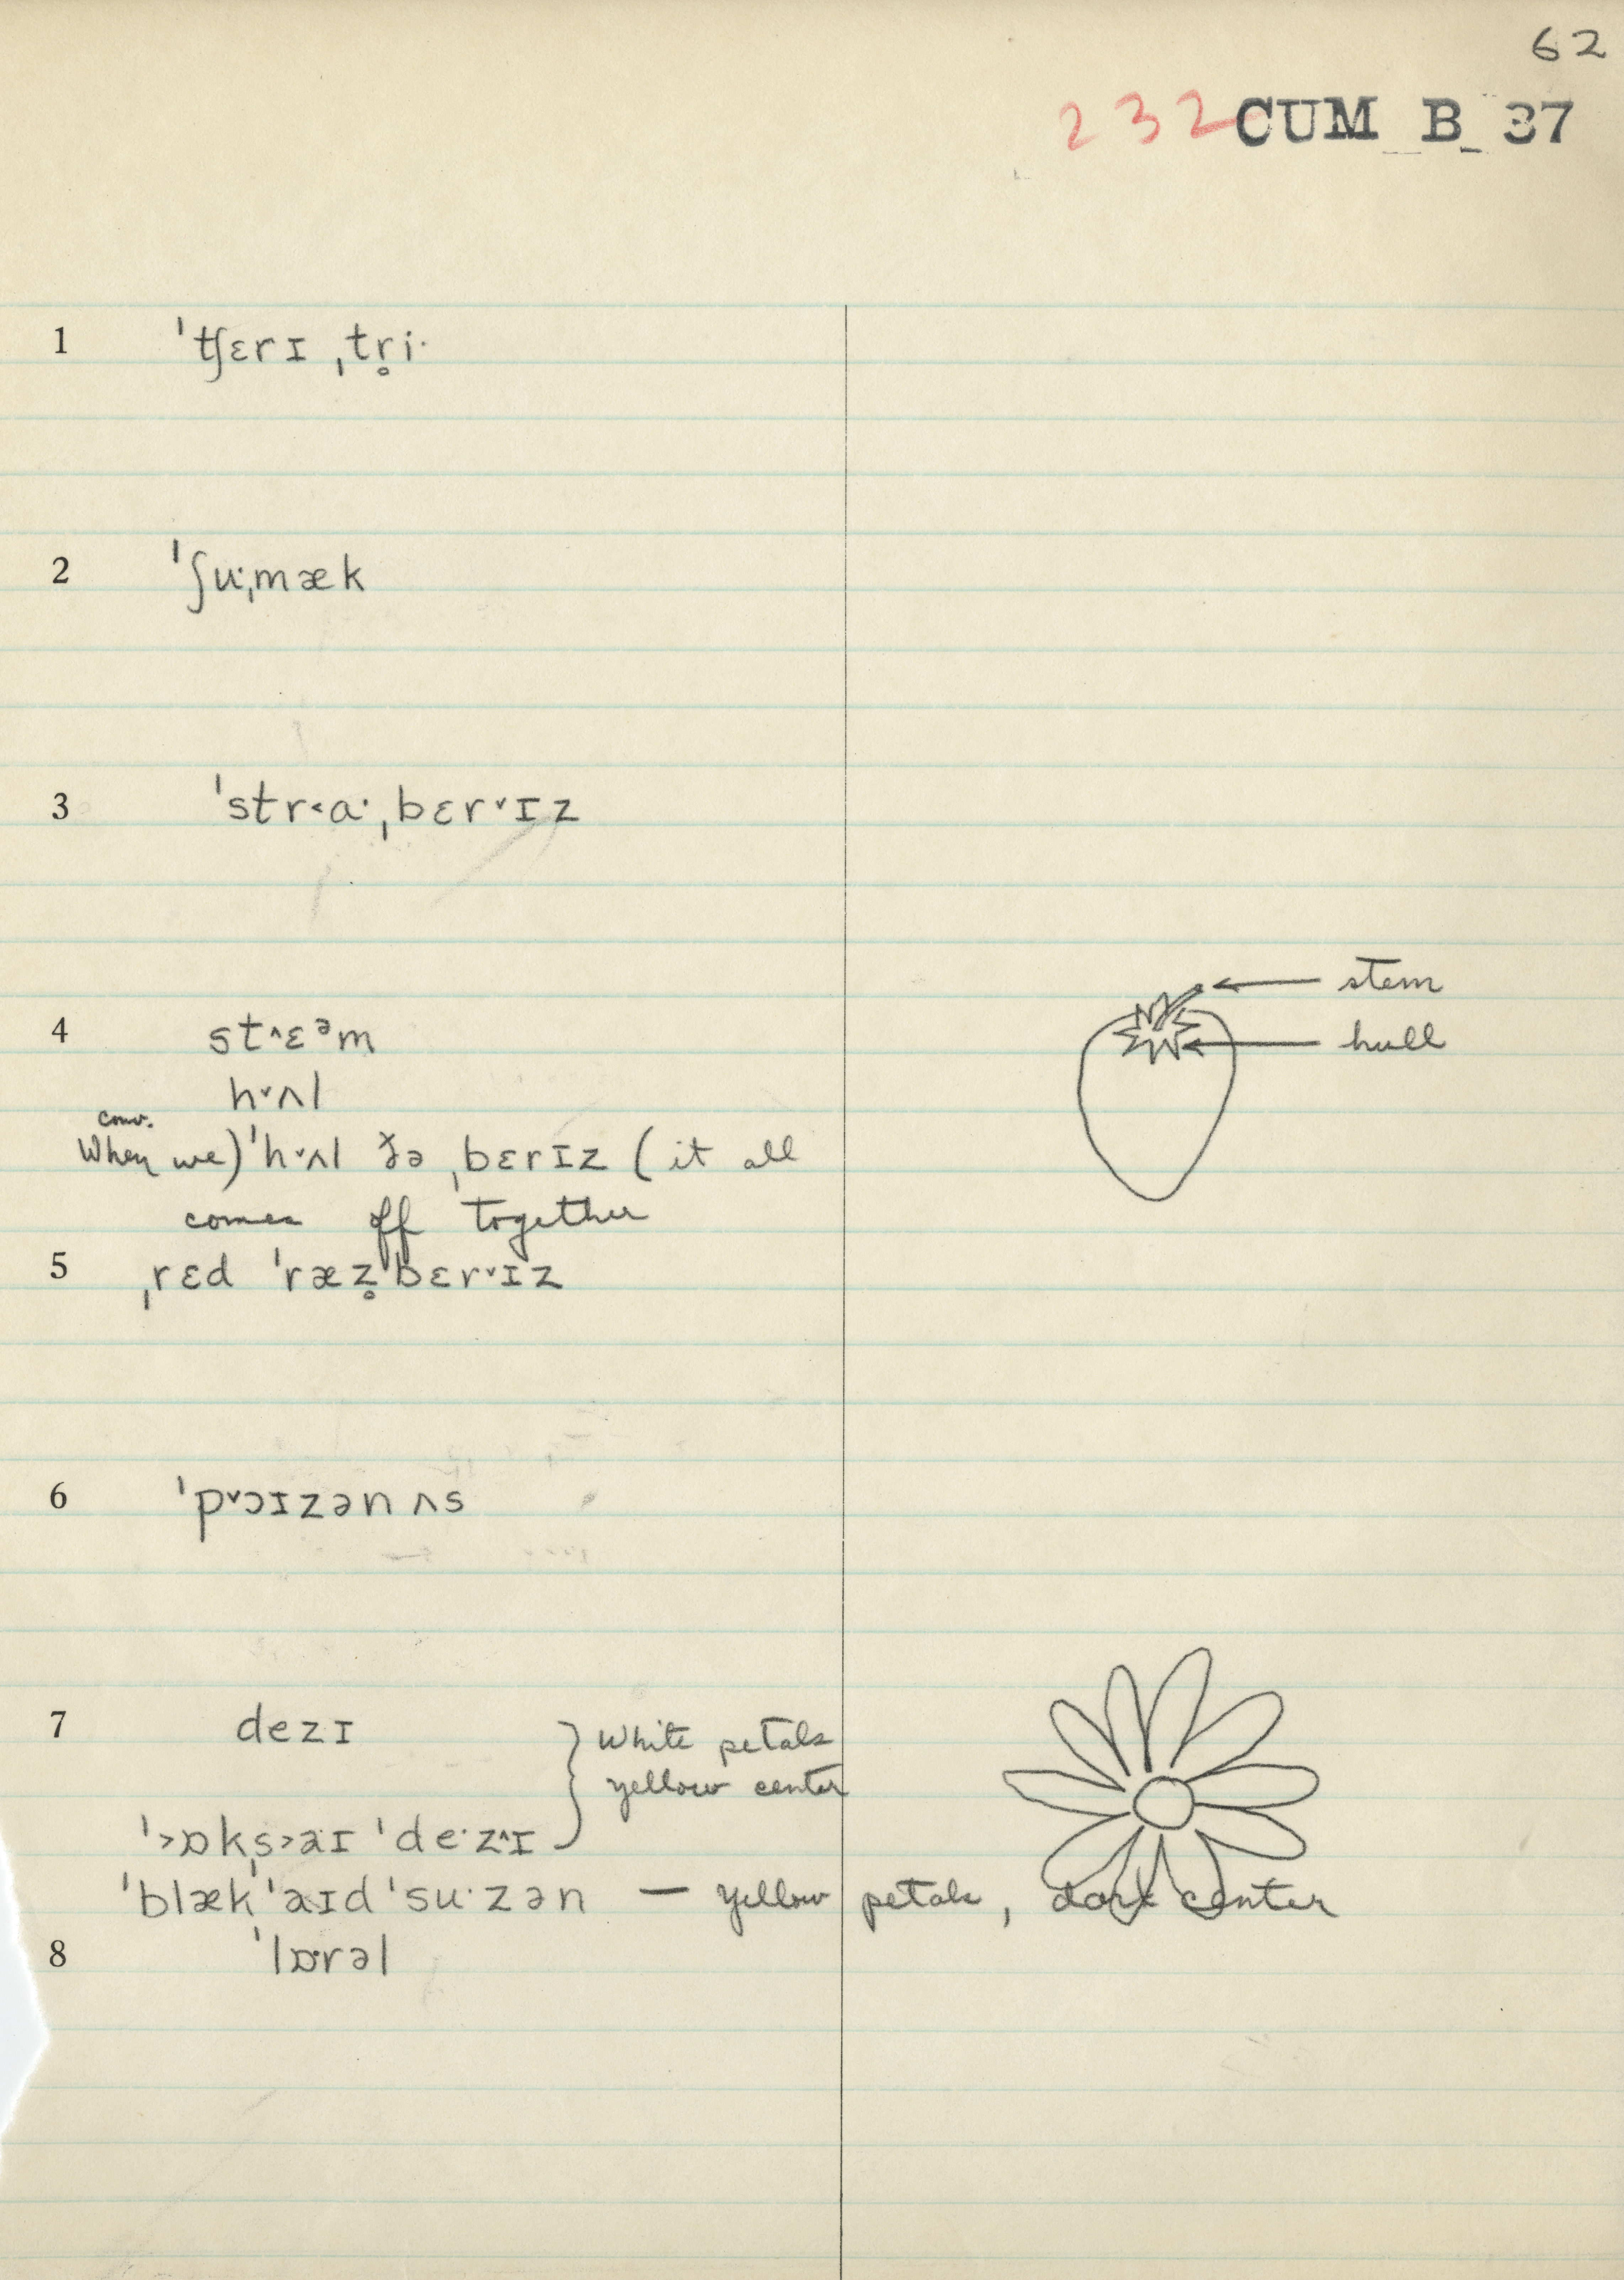 62
232 CUM B 37
1 ˈtʃɛrɪ ˌtr̥i·
2 ˈʃu·ˌmæk
3 ˈstr˂a·ˌbɛr˅ɪz
stem
4 st˄ɛᵊm
hull
h˅ʌl
conv.
When we) ˈh˅ʌl ð̆ə ˌbɛrɪz (it all
comes off together
5 ˌrɛd ˈræz̥ˈbɛr˅ɪz
6 ˈp˅ɔɪzən ʌs
7 dezɪ
White petals
yellow center
ˈ˃ɒkˌs˃aɪ ˈde·z˄ɪ
ˈblækˈaɪdˈsu·zən — yellow petals, dark center
8 ˈlɒ·rəl